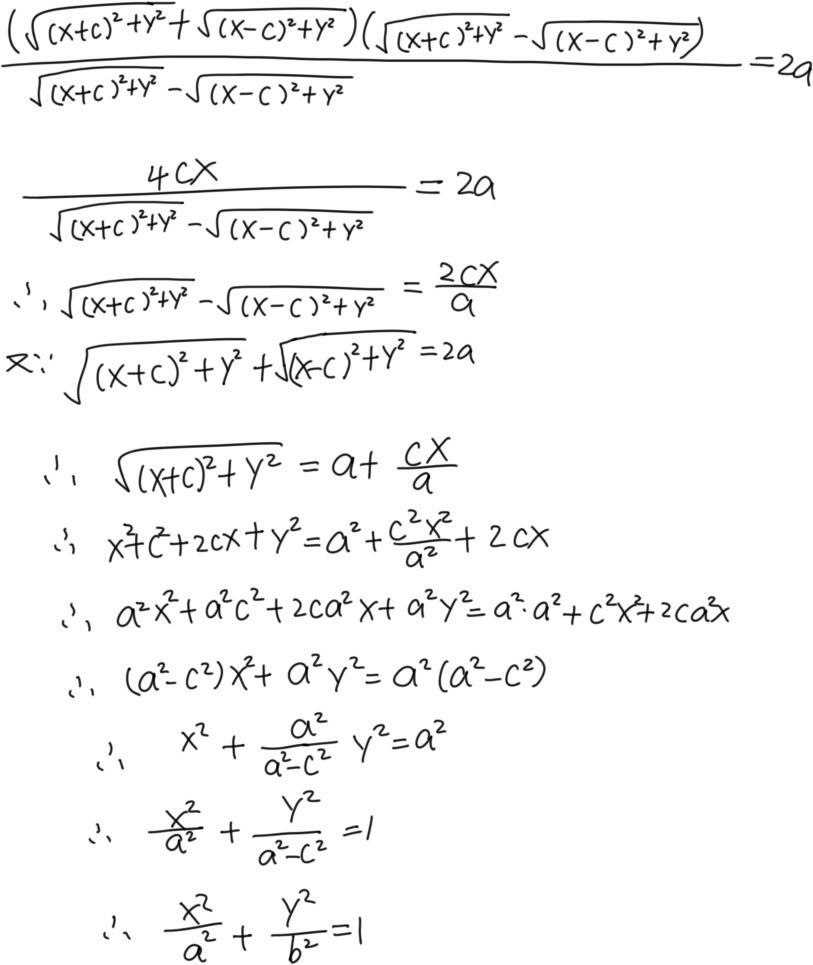 \frac{(\sqrt{(x+c)^2+y^2}+\sqrt{(x-c)^2+y^2})(\sqrt{(x+c)^2+y^2}-\sqrt{(x-c)^2+y^2})}{\sqrt{(x+c)^2+y^2}-\sqrt{(x-c)^2+y^2}}=2a
\frac{4cx}{\sqrt{(x+c)^2+y^2}-\sqrt{(x-c)^2+y^2}}=2a
∴ \sqrt{(x+c)^2+y^2}-\sqrt{(x-c)^2+y^2}=\frac{2cx}{a}
又∵ \sqrt{(x+c)^2+y^2}+\sqrt{(x-c)^2+y^2}=2a
∴ \sqrt{(x+c)^2+y^2}=a+\frac{cx}{a}
∴ x^2+c^2+2cx+y^2=a^2+\frac{c^2x^2}{a^2}+2cx
∴ a^2x^2+a^2c^2+2ca^2x+a^2y^2=a^2·a^2+c^2x^2+2ca^2x
∴ (a^2-c^2)x^2+a^2y^2=a^2(a^2-c^2)
∴ x^2+\frac{a^2}{a^2-c^2}y^2=a^2
∴ \frac{x^2}{a^2}+\frac{y^2}{a^2-c^2}=1
∴ \frac{x^2}{a^2}+\frac{y^2}{b^2}=1